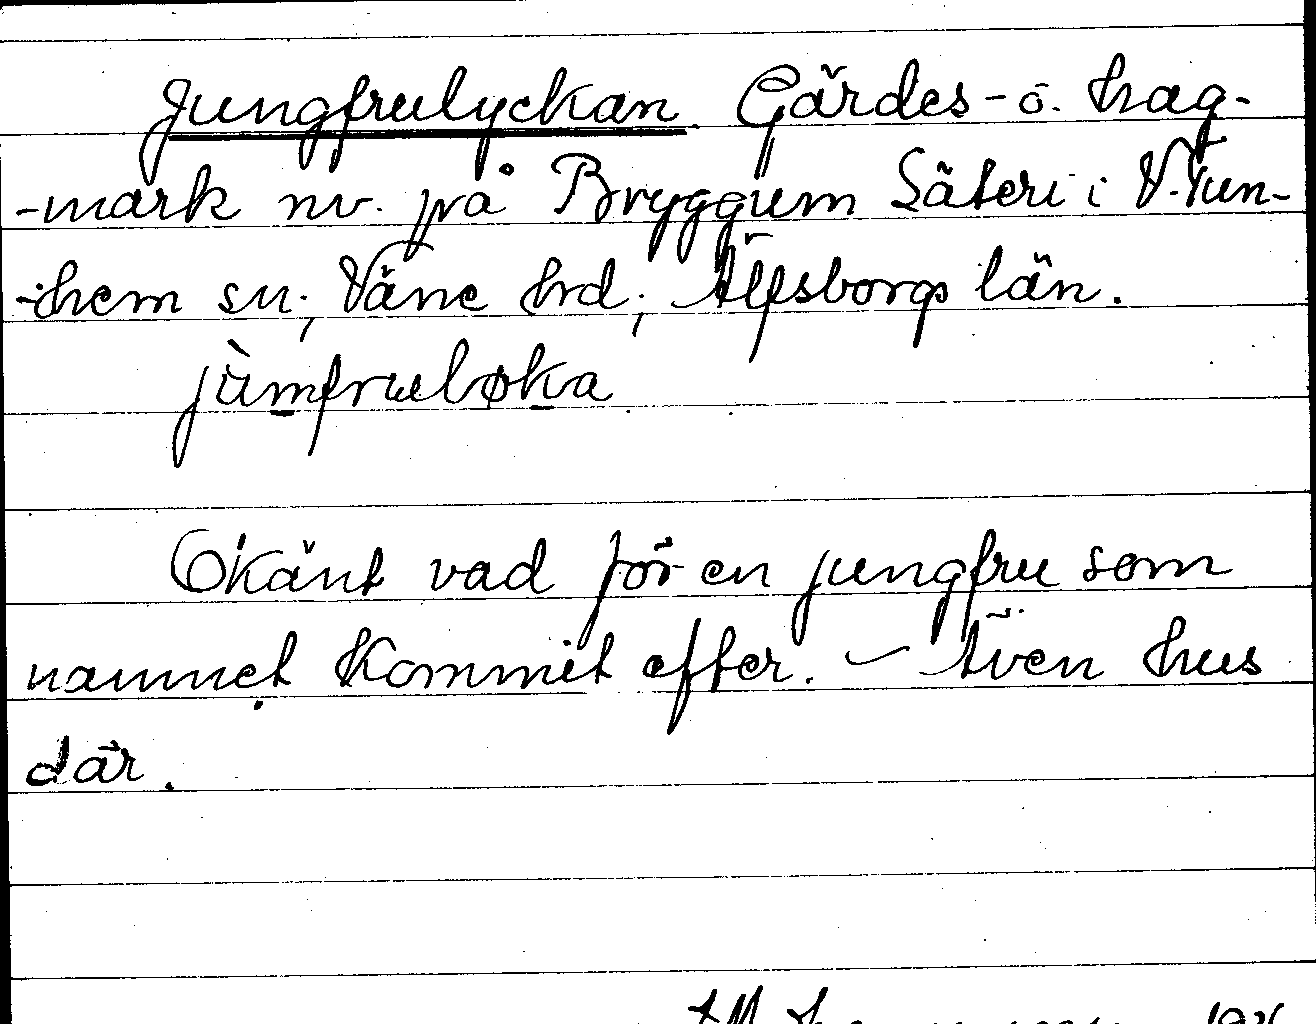 Jungfrulyckan. Gärdes- o. hag-
-mark nv. på Bryggum Säteri i V. Tun-
-hem sn; Väne hrd; Älfsborgs län.
jùmfruløka
Okänt vad för en jungfru som
namnet kommit efter. — Även hus
där.